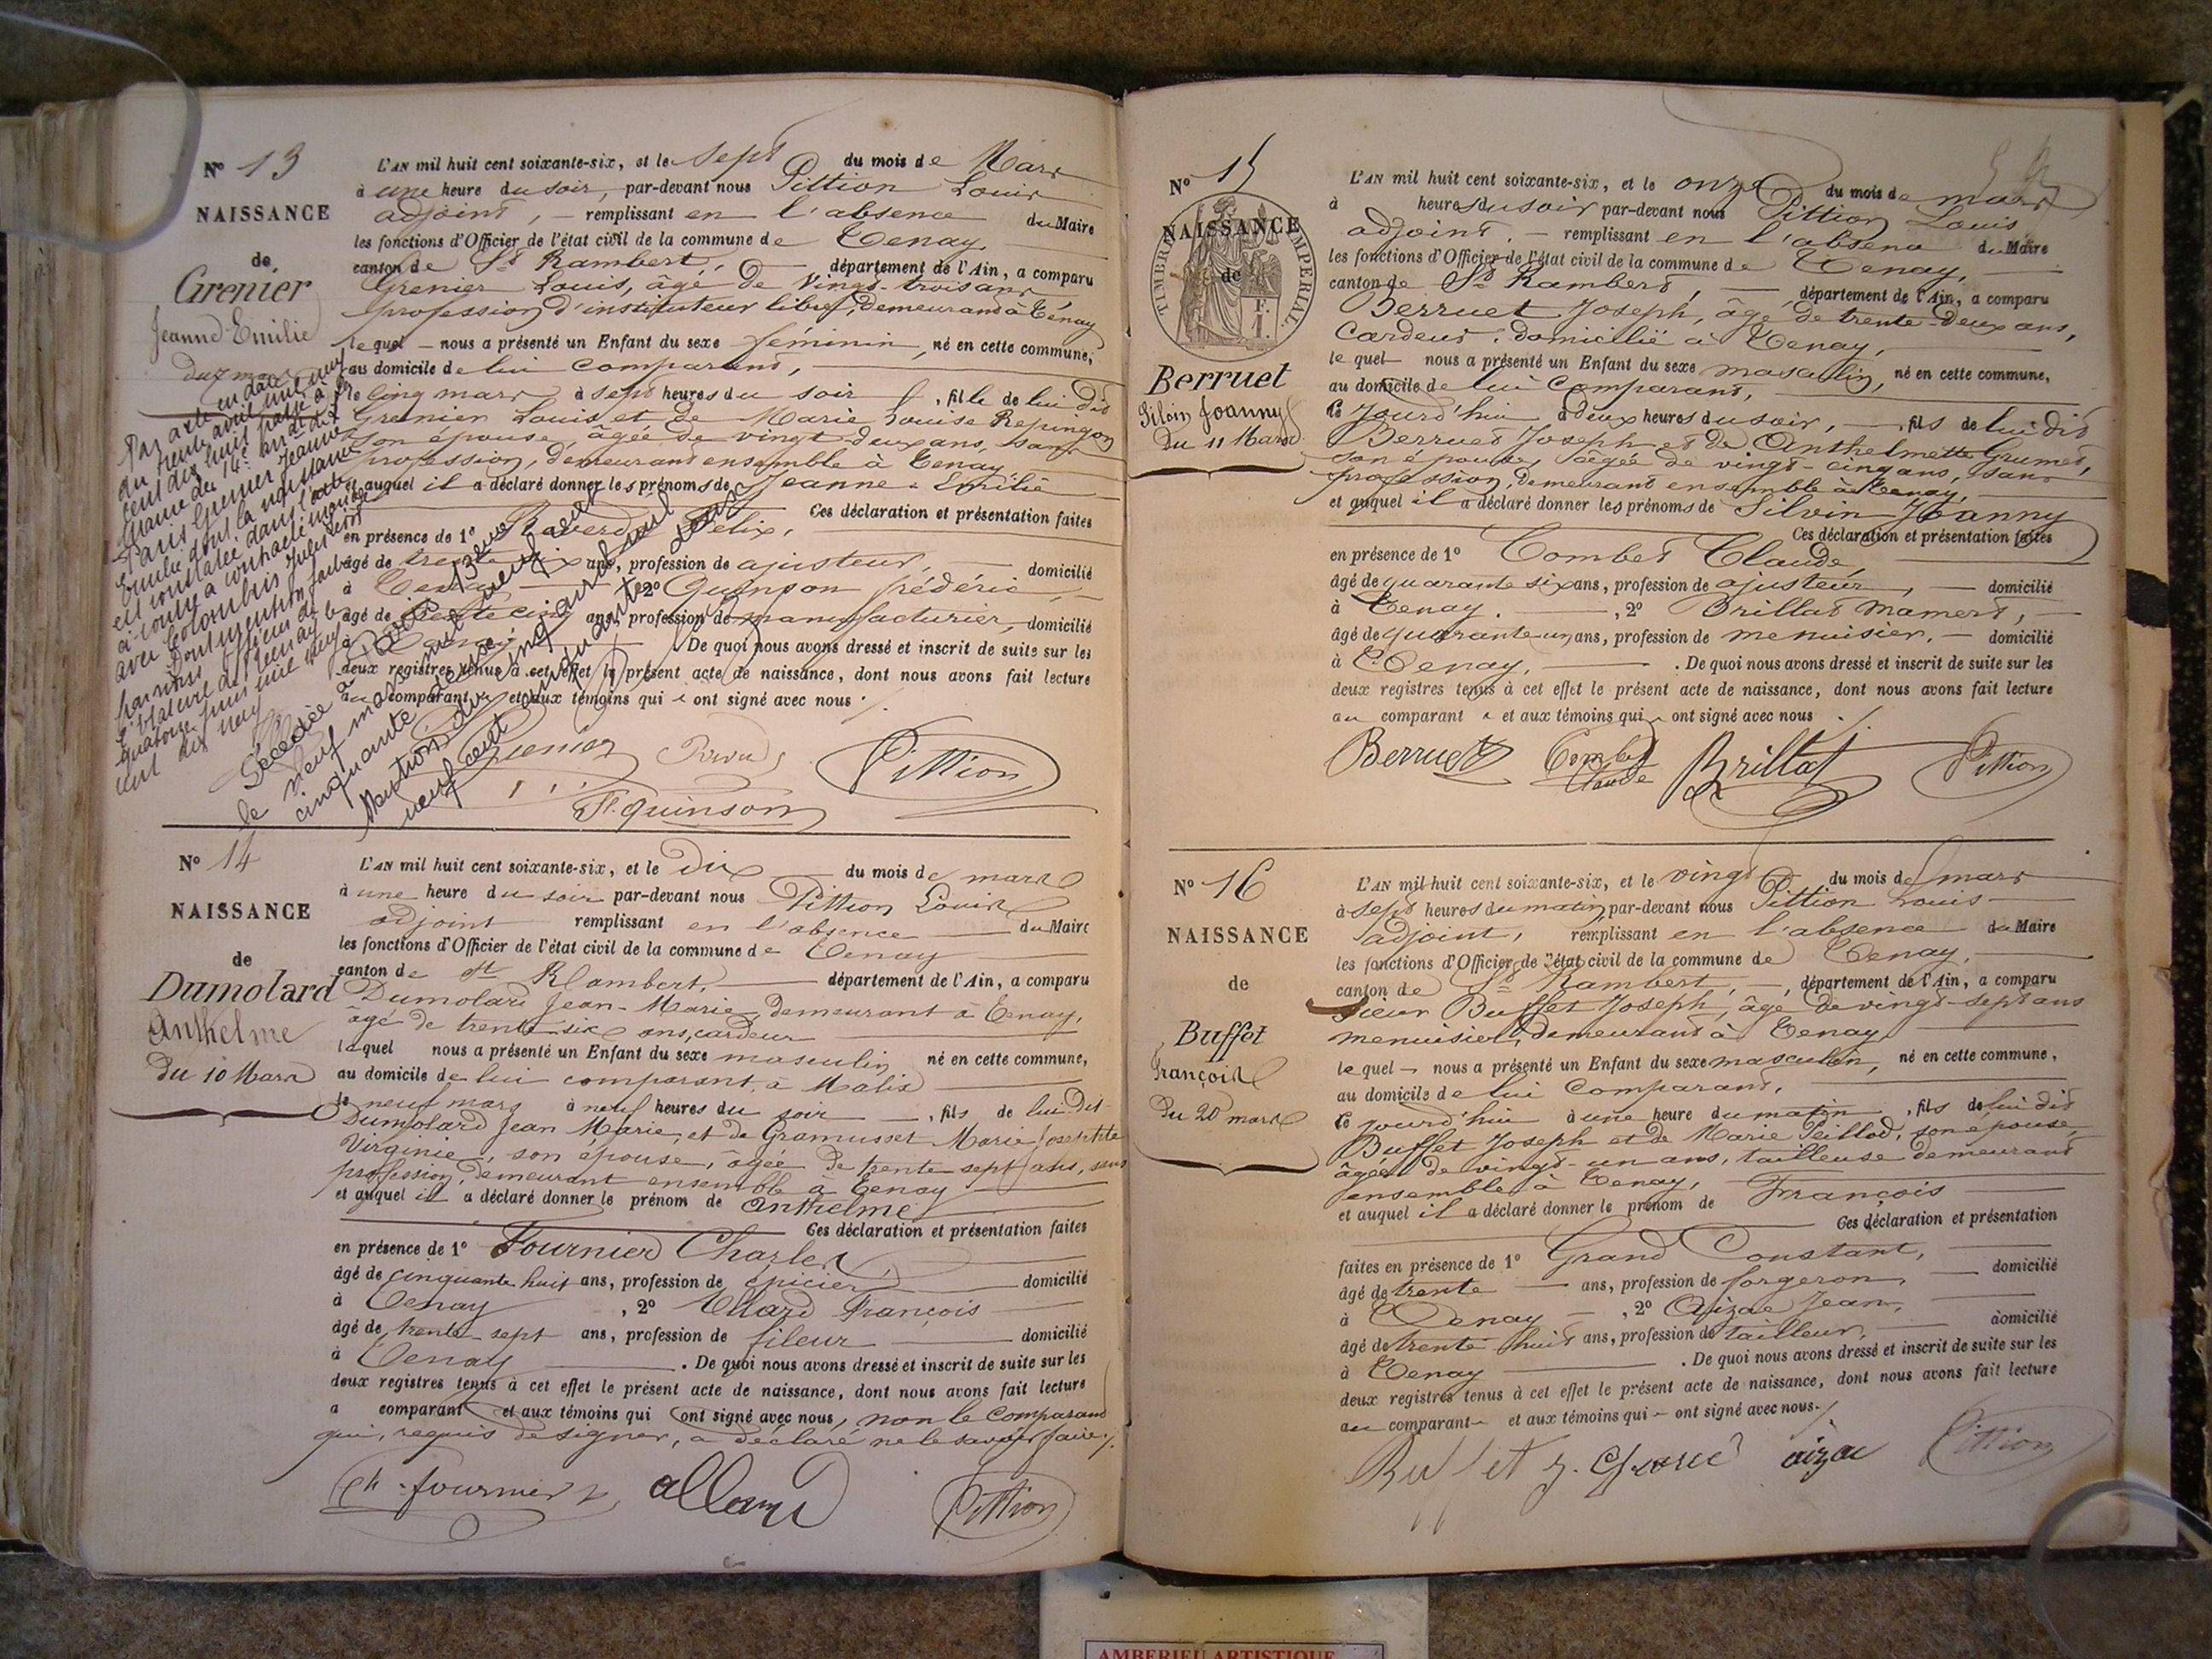 N° 13
NAISSANCE
de
Grenier
Jeanne Emilie
du 7 mars
L'AN mil huit cent soixante-six, et le sept du mois de Mars
à une heure du soir, par-devant nous Pittion Louis
adjoint, — remplissant en l'absence du Maire
les fonctions d'Officier de l'état civil de la commune de Tenay,
canton de St Rambert, département de l'Ain, a comparu
Grenier Louis, âgé de vingt-trois ans
profession d'instituteur libre, demeurant à Tenay
lequel — nous a présenté un Enfant du sexe féminin, né en cette commune,
au domicile de lui comparant,
le cinq mars à sept heures du soir, fille de lui dit
Grenier Louis et de Marie Louise Repingon
son épouse, âgée de vingt-deux ans, sans
profession, demeurant ensemble à Tenay,
et auquel il a déclaré donner les prénoms de Jeanne-Emilie
Ces déclaration et présentation faites
en présence de 1° Félix,
âgé de trente six ans, profession de ajusteur, domicilié
à Tenay 2° Quinson frédéric,
âgé de trente cinq ans, profession de manufacturier, domicilié
à Tenay. De quoi nous avons dressé et inscrit de suite sur les
deux registres tenus à cet effet le présent acte de naissance, dont nous avons fait lecture
au comparant et aux témoins qui ont signé avec nous.
Par acte en date
du trente avril mil neuf
cent dix huit passé à la
Mairie du 14e arrdt de
Paris, Grenier Jeanne
Emilie dont la naissance
est constatée dans l'acte
ci-contre a contracté mariage
avec Colombris Jules
Dont mention faite
par nous officier de
quatorze juin mil neuf
cent dix neuf
Décédée à Paris 13eme
le neuf mars mil neuf cent
cinquante
Mention du cinq avril mil
neuf cent cinquante
Grenier Pittion
F. Quinson
N° 14
NAISSANCE
de
Dumolard
Anthelme
Du 10 Mars
L'AN mil huit cent soixante-six, et le Dix du mois de mars
à une heure du soir par-devant nous Pittion Louis
adjoint remplissant en l'absence du Maire
les fonctions d'Officier de l'état civil de la commune de Tenay
canton de St Rambert, département de l'Ain, a comparu
Dumolard Jean-Marie, demeurant à Tenay,
âgé de trente-six ans, cardeur
lequel nous a présenté un Enfant du sexe masculin né en cette commune,
au domicile de lui comparant, à Malix
le neuf mars à neuf heures du soir, fils de lui dit
Dumolard Jean Marie, et de Gramusset Marie Josephte
Virginie, son épouse, âgée de trente sept ans, sans
profession, demeurant ensemble à Tenay
et auquel il a déclaré donner le prénom de Anthelme
Ces déclaration et présentation faites
en présence de 1° Fournier Charles,
âgé de cinquante huit ans, profession de épicier domicilié
à Tenay, 2° Allard François
âgé de trente-sept ans, profession de fileur domicilié
à Tenay. De quoi nous avons dressé et inscrit de suite sur les
deux registres tenus à cet effet le présent acte de naissance, dont nous avons fait lecture
a comparant et aux témoins qui ont signé avec nous, non le comparant
qui, requis de signer, a déclaré ne le savoir faire.
Ch. fournier allard Pittion
N° 15
NAISSANCE
de
TIMBRE IMPERIAL
F.
1.
Berruet
Silvin Joanny
Du 11 Mars
L'AN mil huit cent soixante-six, et le onze du mois de mars
à heures du soir par-devant nous Pittion Louis
adjoint. — remplissant en l'absence du Maire
les fonctions d'Officier de l'état civil de la commune de Tenay,
canton de St Rambert, département de l'Ain, a comparu
Berruet Joseph, âgé de trente-deux ans,
cardeur, domicilié à Tenay,
lequel nous a présenté un Enfant du sexe masculin, né en cette commune,
au domicile de lui comparant,
Ce jourd'hui à deux heures du soir, fils de lui dit
Berruet Joseph et de Anthelmette Grumet,
son épouse, âgée de vingt-cinq ans, sans
profession, demeurant ensemble à Tenay,
et auquel il a déclaré donner les prénoms de Silvin Joanny
Ces déclaration et présentation faites
en présence de 1° Combet Claude,
âgé de quarante six ans, profession de ajusteur, domicilié
à Tenay. , 2° Brillat Mamert,
âgé de quarante un ans, profession de menuisier, domicilié
à Tenay, . De quoi nous avons dressé et inscrit de suite sur les
deux registres tenus à cet effet le présent acte de naissance, dont nous avons fait lecture
au comparant et aux témoins qui ont signé avec nous.
Berruet Combet Claude Brillat Pittion
N° 16
NAISSANCE
de
Buffet
François
Du 20 mars
L'AN mil huit cent soixante-six, et le vingt du mois de mars
à sept heures du matin par-devant nous Pittion Louis
adjoint, remplissant en l'absence du Maire
les fonctions d'Officier de l'état civil de la commune de Tenay,
canton de St Rambert, département de l'Ain, a comparu
sieur Buffet Joseph, âgé de vingt-sept ans
menuisier, demeurant à Tenay
lequel nous a présenté un Enfant du sexe masculin, né en cette commune,
au domicile de lui comparant,
Ce jourd'hui à une heure du matin, fils de lui dit
Buffet Joseph et de Marie Peillod, son épouse,
âgée de vingt-un ans, tailleuse demeurant
ensemble à Tenay,
et auquel il a déclaré donner le prénom de François
Ces déclaration et présentation
faites en présence de 1° Grand Constant,
âgé de trente ans, profession de forgeron, domicilié
à Tenay, 2° Aizac Jean,
âgé de trente huit ans, profession de tailleur, domicilié
à Tenay. De quoi nous avons dressé et inscrit de suite sur les
deux registres tenus à cet effet le présent acte de naissance, dont nous avons fait lecture
au comparant et aux témoins qui ont signé avec nous.
Buffet aizac Pittion
AMBERIEU ARTISTIQUE